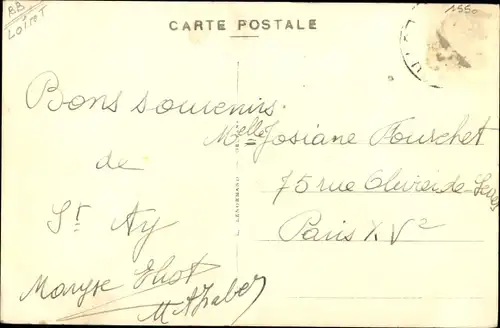 BB
LOIRET
CARTE POSTALE
1550
Bons souvenirs
de
St Ay
Maryse
Melle Josiane Fourchet
75 rue Olivier de Serres
Paris XV e